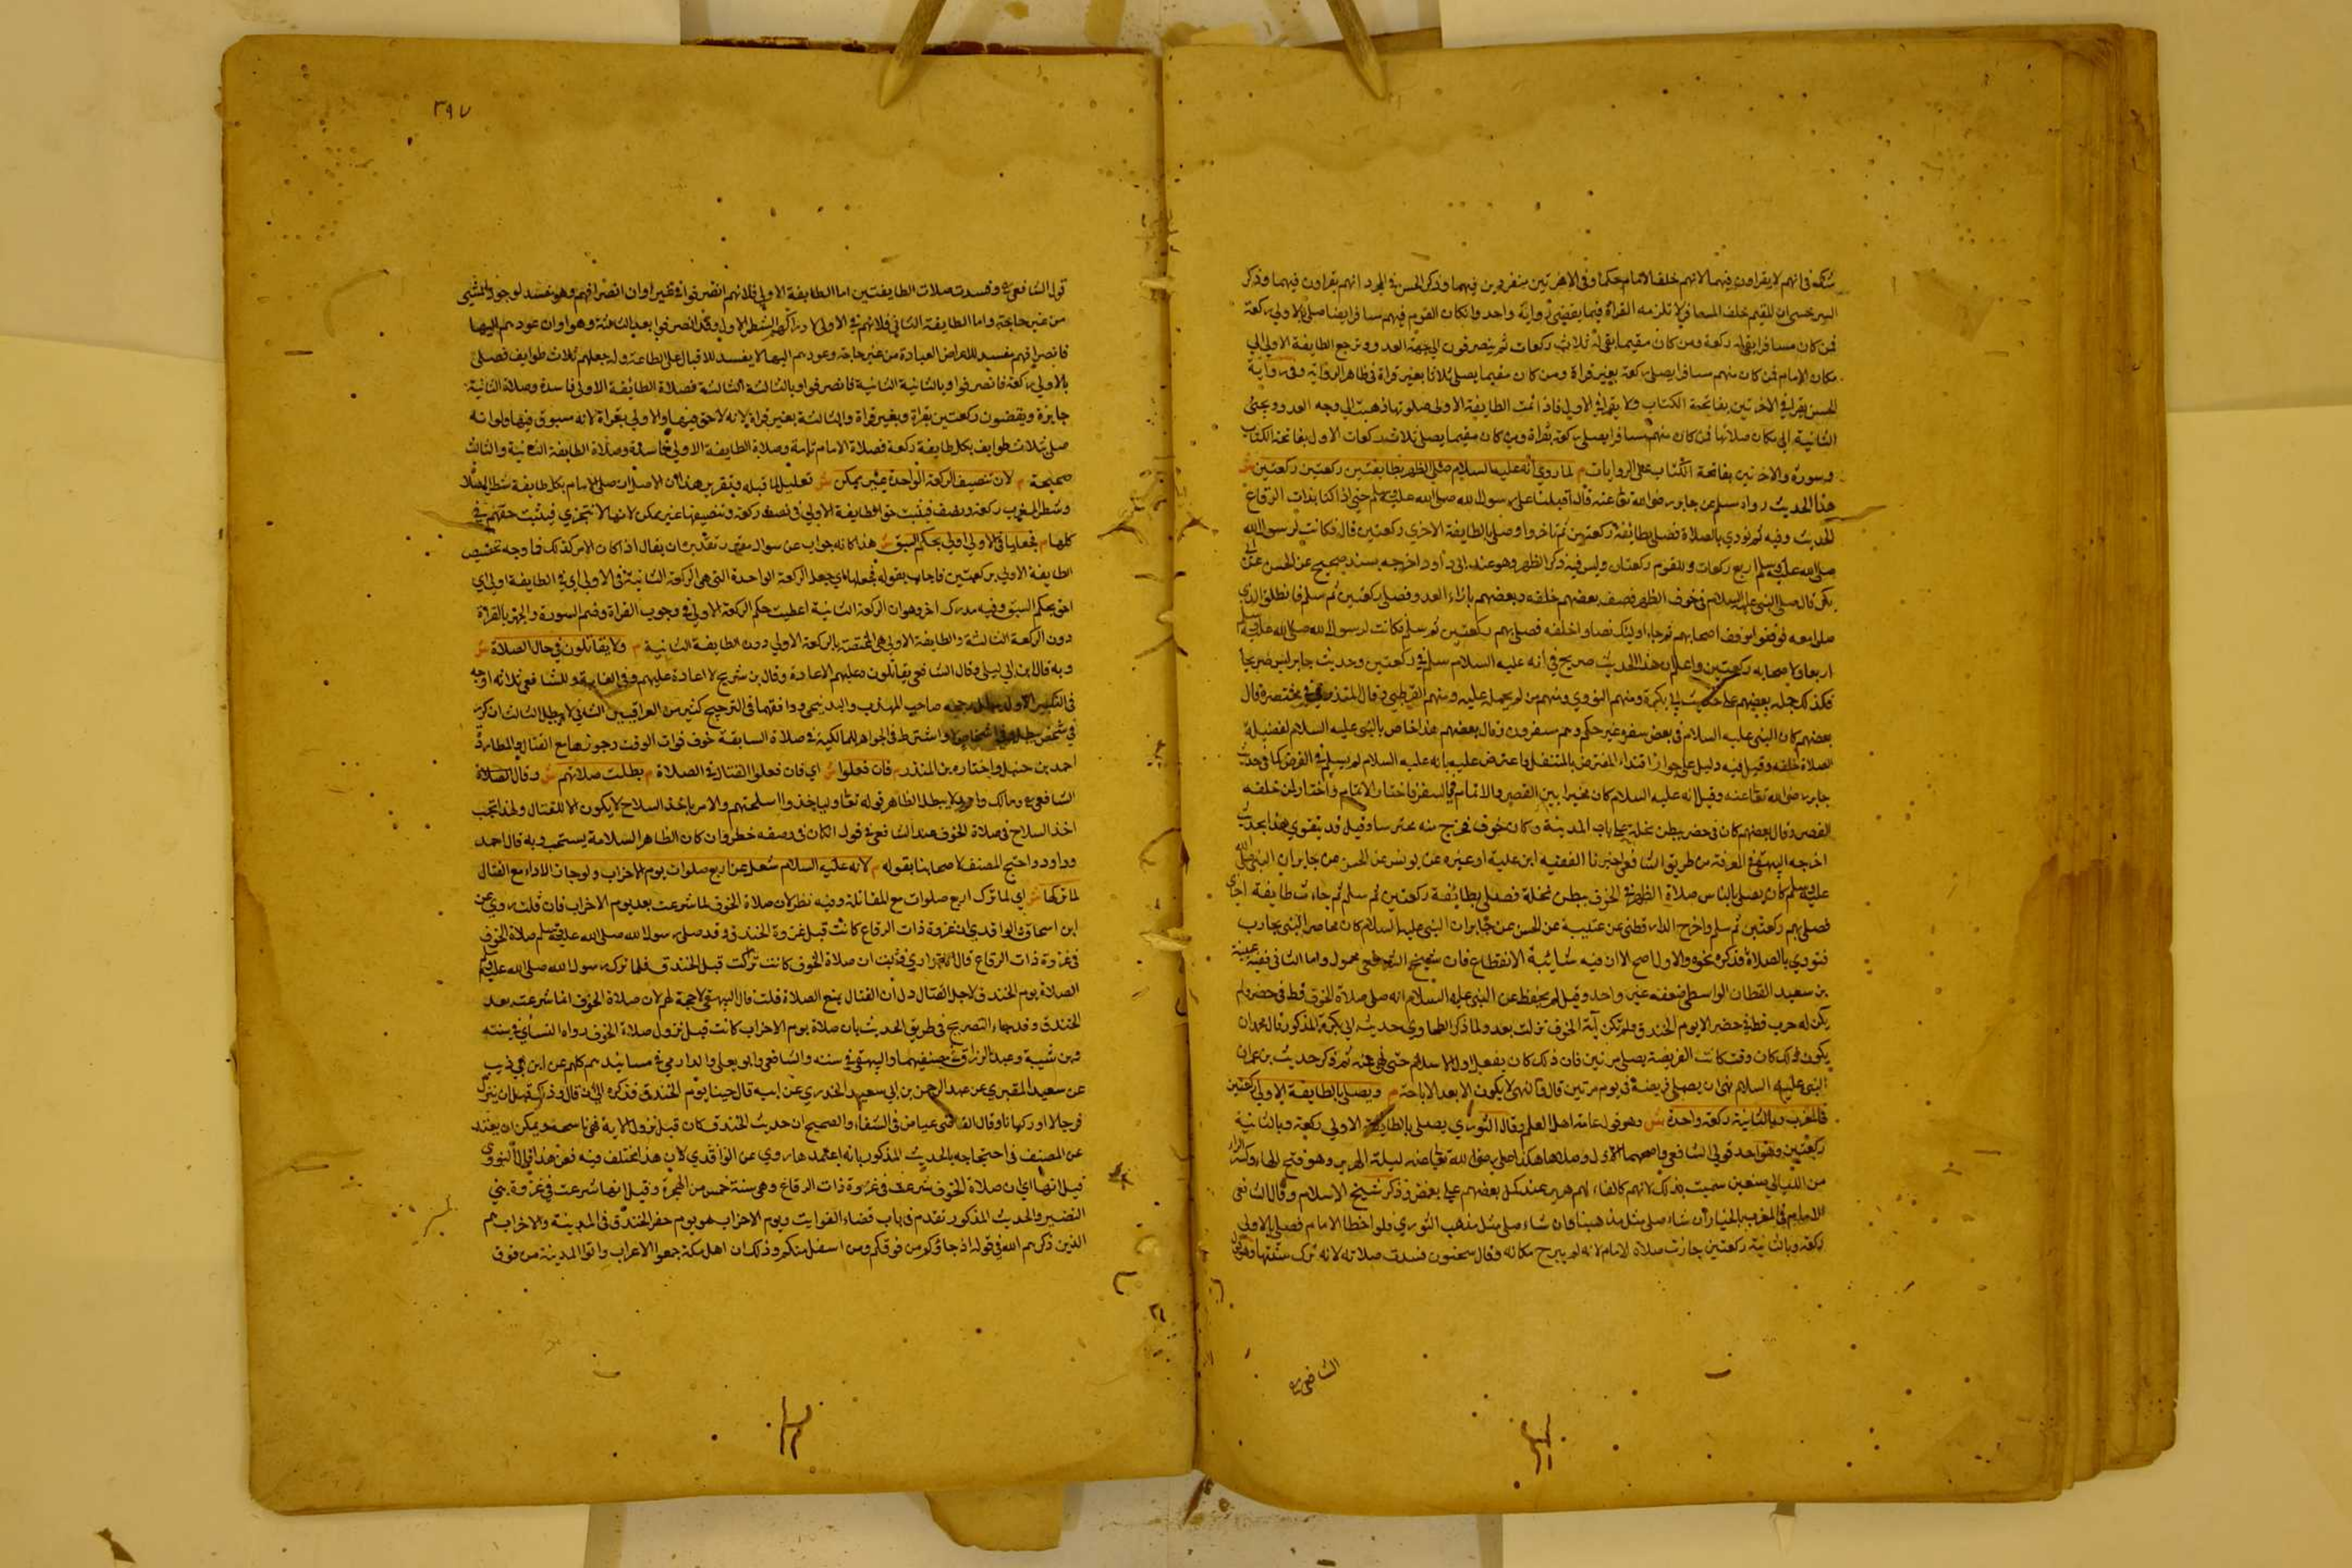 فانهم لا يقراون فيهما لانهم خلف الامام حكما وفي الاخرتين منفردين فيهما وذكر الحسن في المجرد انهم يقراون فيهما وذكر
السرخسي ان المقيم خلف المسافر لا تلزمه القراة فيما يقضي رواية واحدة وان كان القوم فيهم مسافر ايضا صلى بالاولى ركعة
فمن كان مسافرا بقي له ركعة ومن كان مقيما بقي له ثلاث ركعات ثم ينصرفون الى جهة العدو وترجع الطايفة الاولى الى
مكان الامام فمن كان منهم مسافرا يصلي ركعة بغير قراة ومن كان مقيما يصلي ثلاثا بغير قراة في ظاهر الرواية وفي رواية
الحسن يقرا في الاخرتين بفاتحة الكتاب ولا يقرا في الاولى فاذا اتمت الطايفة الاولى صلوتها ذهبت الى وجه العدو ويجئ
الثانية الى مكان صلاتها فمن كان منهم مسافرا يصلي ركعة بقراة ومن كان مقيما يصلي ثلاث ركعات الاولى بفاتحة الكتاب
وسورة والاخرتين بفاتحة الكتاب على الروايات م لما روي انه عليه السلام صلى الظهر بطايفتين ركعتين ركعتين ش
هذا الحديث رواه مسلم عن جابر رضي الله تعا عنه قال اقبلنا على رسول الله صلى الله عليه وسلم حتى اذا كنا بذات الرقاع
الحديث وفيه ثم نودي بالصلاة فصلى بطايفة ركعتين ثم تاخروا وصلى بالطايفة الاخرى ركعتين قال فكانت لرسول الله
صلى الله عليه وسلم اربع ركعات وللقوم ركعتان وليس فيه ذكر الظهر وهو عند ابي داود اخرجه بسند صحيح عن الحسن عن ابي
بكرة قال صلى النبي عليه السلام في خوف الظهر فصف بعضهم خلفه وبعضهم بازاء العدو فصلى ركعتين ثم سلم فانطلق الذين
صلوا معه فوقفوا موقف اصحابهم ثم جاء اوليك فصلوا خلفه فصلى بهم ركعتين ثم سلم فكانت لرسول الله صلى الله عليه وسلم
اربعا ولاصحابه ركعتين واعلم ان هذا الحديث صريح في انه عليه السلام سلم في ركعتين وحديث جابر ليس صريحا
فكذلك حمله بعضهم على حديث ابي بكرة ومنهم النووي ومنهم من لم يحمله عليه ومنهم القرطبي وقال المنذري في مختصره قال
بعضهم كان النبي عليه السلام في بعض سفر وغير حكم وهم مسفرون وقال بعضهم هذا خاص بالنبي عليه السلام لفضيلة
الصلاة خلفه وقيل فيه دليل على جواز اقتداء المفترض بالمتنفل واعترض عليه بانه عليه السلام لم يسلم في الفرض كما في حديث
جابر رضي الله تعا عنه وقيل انه عليه السلام كان مخيرا بين القصر والاتمام في السفر فاختار الاتمام واختار لمن خلفه
القصر وقال بعضهم كان في حضر ببطن نخلة على باب المدينة وكان خوف فخرج منه محترسا وقيل قد يتقوى هذا بحديث
اخرجه البيهقي في المعرفة من طريق الشافعي اخبرنا الفقيه ابن علية او غيره عن يونس عن الحسن عن جابر ان النبي صلى الله
عليه وسلم كان يصلي بالناس صلاة الظهر في الخوف ببطن نخلة فصلى بطائفة ركعتين ثم سلم ثم جاءت طايفة اخرى
فصلى بهم ركعتين ثم سلم واخرج الدارقطني عن عنبسة عن الحسن عن جابر ان النبي عليه السلام كان محاصر بني محارب
فنودي بالصلاة فذكره نحوه والاول اصح الا ان فيه شائبة الانقطاع فان شيخ الشافعي مجهول واما الثاني ففيه عنبسة
بن سعيد القطان الواسطي ضعفه غير واحد وقيل لم يحفظ عن النبي عليه السلام انه صلى صلاة الخوف قط في حضر ولم
يكن له حرب قط في حضر الا يوم الخندق ولم تكن آية الخوف نزلت بعد ولما ذكر الطحاوي حديث ابي بكرة المذكور قال يجوز ان
يكون ذلك كان وقت كانت الفريضة يصلي مرتين فان ذلك كان يفعل اول الاسلام حتى نهي عنه ثم ذكر حديث بن عمر ان
النبي عليه السلام نهى ان يصلي فريضة في يوم مرتين قال فالنهي لا يكون الا بعد الاباحة م ويصلي بالطايفة الاولى ركعتين
في المغرب وبالثانية ركعة واحدة ش وهو قول عامة اهل العلم وقال الثوري يصلي بالطايفة الاولى ركعة وبالثانية
ركعتين وهو احد قولي الشافعي واصحهما الاول وصلاها هكذا علي رضي الله تعا عنه ليلة الهرير وهو بفتح الهاء وكسر الراء
من الليالي صفين سميت بذلك لانهم كان لهم هرير عند حمل بعضهم على بعض وذكر شيخ الاسلام وقال الشافعي
الامام في المغرب بالخيار ان شاء صلى مثل مذهبنا وان شاء صلى مثل مذهب الثوري فلو اخطا الامام فصلى بالاولى
ركعة وبالثانية ركعتين جازت صلاة الامام لانه لم يبرح مكانه وقال سحنون فسدت صلاته لانه ترك سنتها وهو قول
الشافعي
٣٩٧
قول الشافعي وفسدت صلات الطايفتين اما الطايفة الاولى فلانهم انصرفوا في غير اوان انصرافهم وهو مفسد لوجود المشي
من غير حاجة واما الطايفة الثاني فلانهم في الاولى لادراكهم الشطر الاول وقد انصرفوا بعد الثالثة وهو اوان عودهم اليها
فانصرافهم مفسد للاعراض العبادة من غير حاجة وعودهم اليها لا يفسد للاقبال على الطاعة ولو جعلهم ثلاث طوايف فصلى
بالاولى ركعة فانصرفوا وبالثانية الثانية فانصرفوا وبالثالثة الثالثة فصلاة الطايفة الاولى فاسدة وصلاة الثانية
جايزة ويقضون ركعتين بقراة وبغير قراة والثالثة بغير قراة لانه لاحق فيها والاولى بقراة لانه مسبوق فيها ولو انه
صلى بثلاث طوايف بكل طايفة ركعة فصلاة الامام تامة وصلاة الطايفة الاولى فاسدة وصلاة الطايفة الثانية والثالث
صحيحة م لان تنصيف الركعة الواحدة غير ممكن ش تعليل لما قبله وتقرير هذا ان الاصل ان يصلي الامام بكل طايفة شطر الصلاة
وشطر المغرب ركعة ونصف فيثبت حق الطايفة الاولى في نصف ركعة وتنصيفها غير ممكن لانها لا تتجزى فيثبت حقهم في
كلها م فجعلها في الاولى اولى بحكم السبق ش هذا كانه جواب عن سوال مقدر تقديره ان يقال اذا كان الامر كذلك فما وجه تخصيص
الطايفة الاولى بركعتين فاجاب بقوله فجعلها اي جعل الركعة الواحدة التي هي الركعة الثانية في الاولى اي في الطايفة اولى اي
احق بحكم السبق وفيه مدرك اخر وهو ان الركعة الثانية اعطيت حكم الركعة الاولى في وجوب القراة وضم السورة والجهر بالقراة
دون الركعة الثالثة والطايفة الاولى هي المختصة بالركعة الاولى دون الطايفة الثانية م ولا يقاتلون في حال الصلاة ش
وبه قال ابن ابي ليلى وقال الشافعي يقاتلون وعليهم الاعادة وقال بن شريح لا اعادة عليهم وفي الغاية وللشافعي ثلاثة اوجه
في التكبير الاول صاحب المهذب والبندنيجي ووافقهما في الترجيح كثير من العراقيين الثاني لا يبطل الثالث ان كرر
في شخص واشترط في الجواهر للمالكية في صلاة السابقة خوف فوات الوقت وجوزها مع القتال والمطاردة
احمد بن حنبل واختاره بن المنذر م فان فعلوا ش اي فان فعلوا القتال في الصلاة م بطلت صلاتهم ش وقال
الشافعي ومالك واحمد لا يبطل لظاهر قوله تعا وليأخذوا اسلحتهم والامر بأخذ السلاح لا يكون الا للقتال ولهذا يجب
اخذ السلاح في صلاة الخوف عند الشافعي في قول ان كان في وصفه خطر وان كان الظاهر السلامة يستحب وبه قال احمد
وداود واحتج المصنف لاصحابنا بقوله م لانه عليه السلام شغل عن اربع صلوات يوم الاحزاب ولو جاز الاداء مع القتال
لما تركها ش اي لما ترك اربع صلوات مع المقاتلة وفيه نظر لان صلاة الخوف لما شرعت بعد يوم الاحزاب فان قلت روي عن
ابن اسحاق والواقدي ان غزوة ذات الرقاع كانت قبل غزوة الخندق وقد صلى رسول الله صلى الله عليه وسلم صلاة الخوف
في غزوة ذات الرقاع قال فثبت ان صلاة الخوف كانت نزلت قبل الخندق فلما ترك رسول الله صلى الله عليه وسلم
الصلاة يوم الخندق لاجل القتال دل ان القتال يمنع الصلاة قلت قال البيهقي لا حجة لهم لان صلاة الخوف انما شرعت بعد
الخندق وقد جاء التصريح في طريق الحديث بان صلاة يوم الاحزاب كانت قبل نزول صلاة الخوف رواه النسائي في سننه
وبن شيبة وعبد الرزاق في مصنفيهما والبيهقي في سننه والشافعي وابو يعلى والدارمي في مسانيدهم كلهم عن ابن ابي ذيب
عن سعيد المقبري عن عبد الرحمن بن ابي سعيد الخدري عن ابيه قال حبسنا يوم الخندق فذكره الى ان قال وذلك قبل ان ينزل
فرجالا او ركبانا وقال القاضي عياض في الشفاء والصحيح ان حديث الخندق كان قبل نزول الآية فهي ناسخة ويمكن ان يعتذر
عن المصنف في احتجاجه بالحديث المذكور بانه اعتمد ما روي عن الواقدي لان هذا مختلف فيه فعن هذا قال النووي
قيل انها اي ان صلاة الخوف شرعت في غزوة ذات الرقاع وهي سنة خمس من الهجرة وقيل انها شرعت في غزوة بني
النضير والحديث المذكور تقدم في باب قضاء الفوايت ويوم الاحزاب هو يوم حفر الخندق في المدينة والاحزاب هم
الذين ذكرهم الله في قوله اذ جاؤكم من فوقكم ومن اسفل منكم وذلك ان اهل مكة جمعوا الاعراب واتوا المدينة من فوق